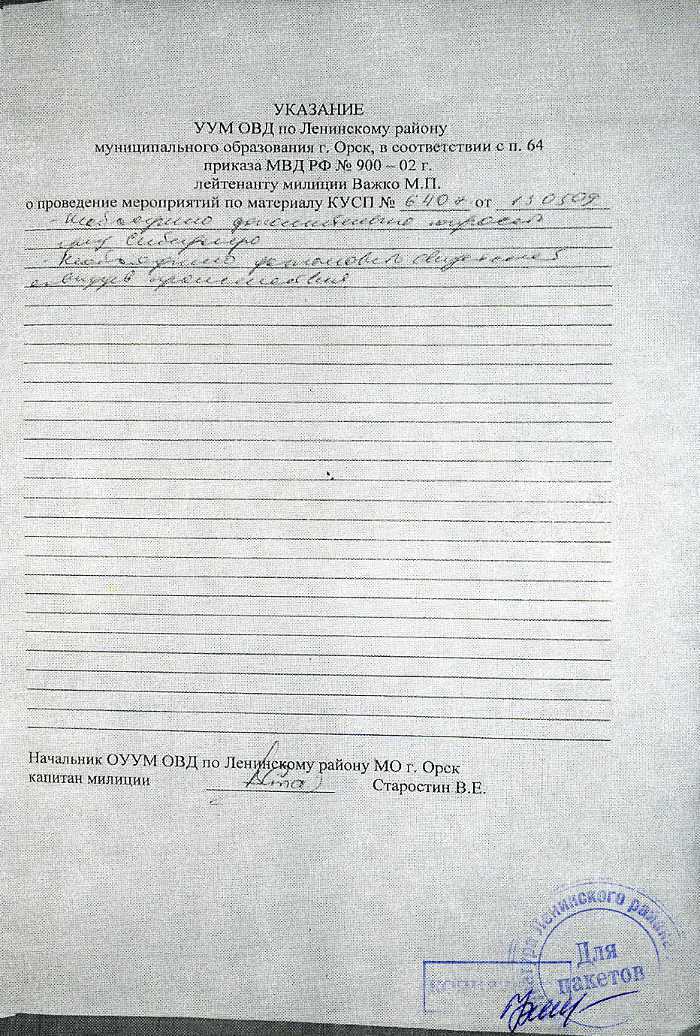 УКАЗАНИЕ
УУМ ОВД по Ленинскому району
муниципального образования г. Орск, в соответствии с п. 64
приказа МВД РФ № 900 – 02 г.
лейтенанту милиции Важко М.П.
о проведение мероприятий по материалу КУСП № 6407 от 130509
- Необходимо дополнительно опросить
гр-ку
- Необходимо установить свидетелей
очевидцев происшествия
Начальник ОУУМ ОВД по Ленинскому району МО г. Орск
капитан милиции Старостин В.Е.
Ленинского района
Для
пакетов